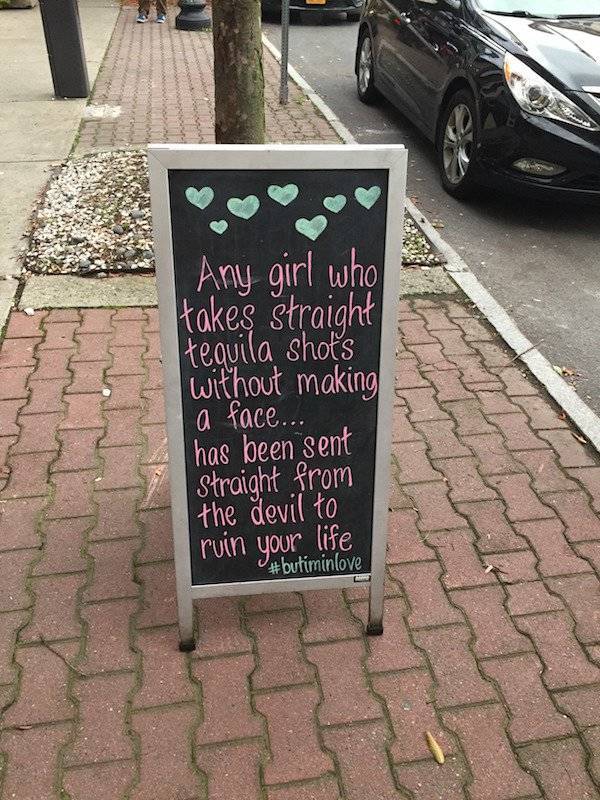 Any girl who
takes straight
tequila shots
without making
a face...
has been sent
straight from
the devil to
ruin your life
#butiminlove